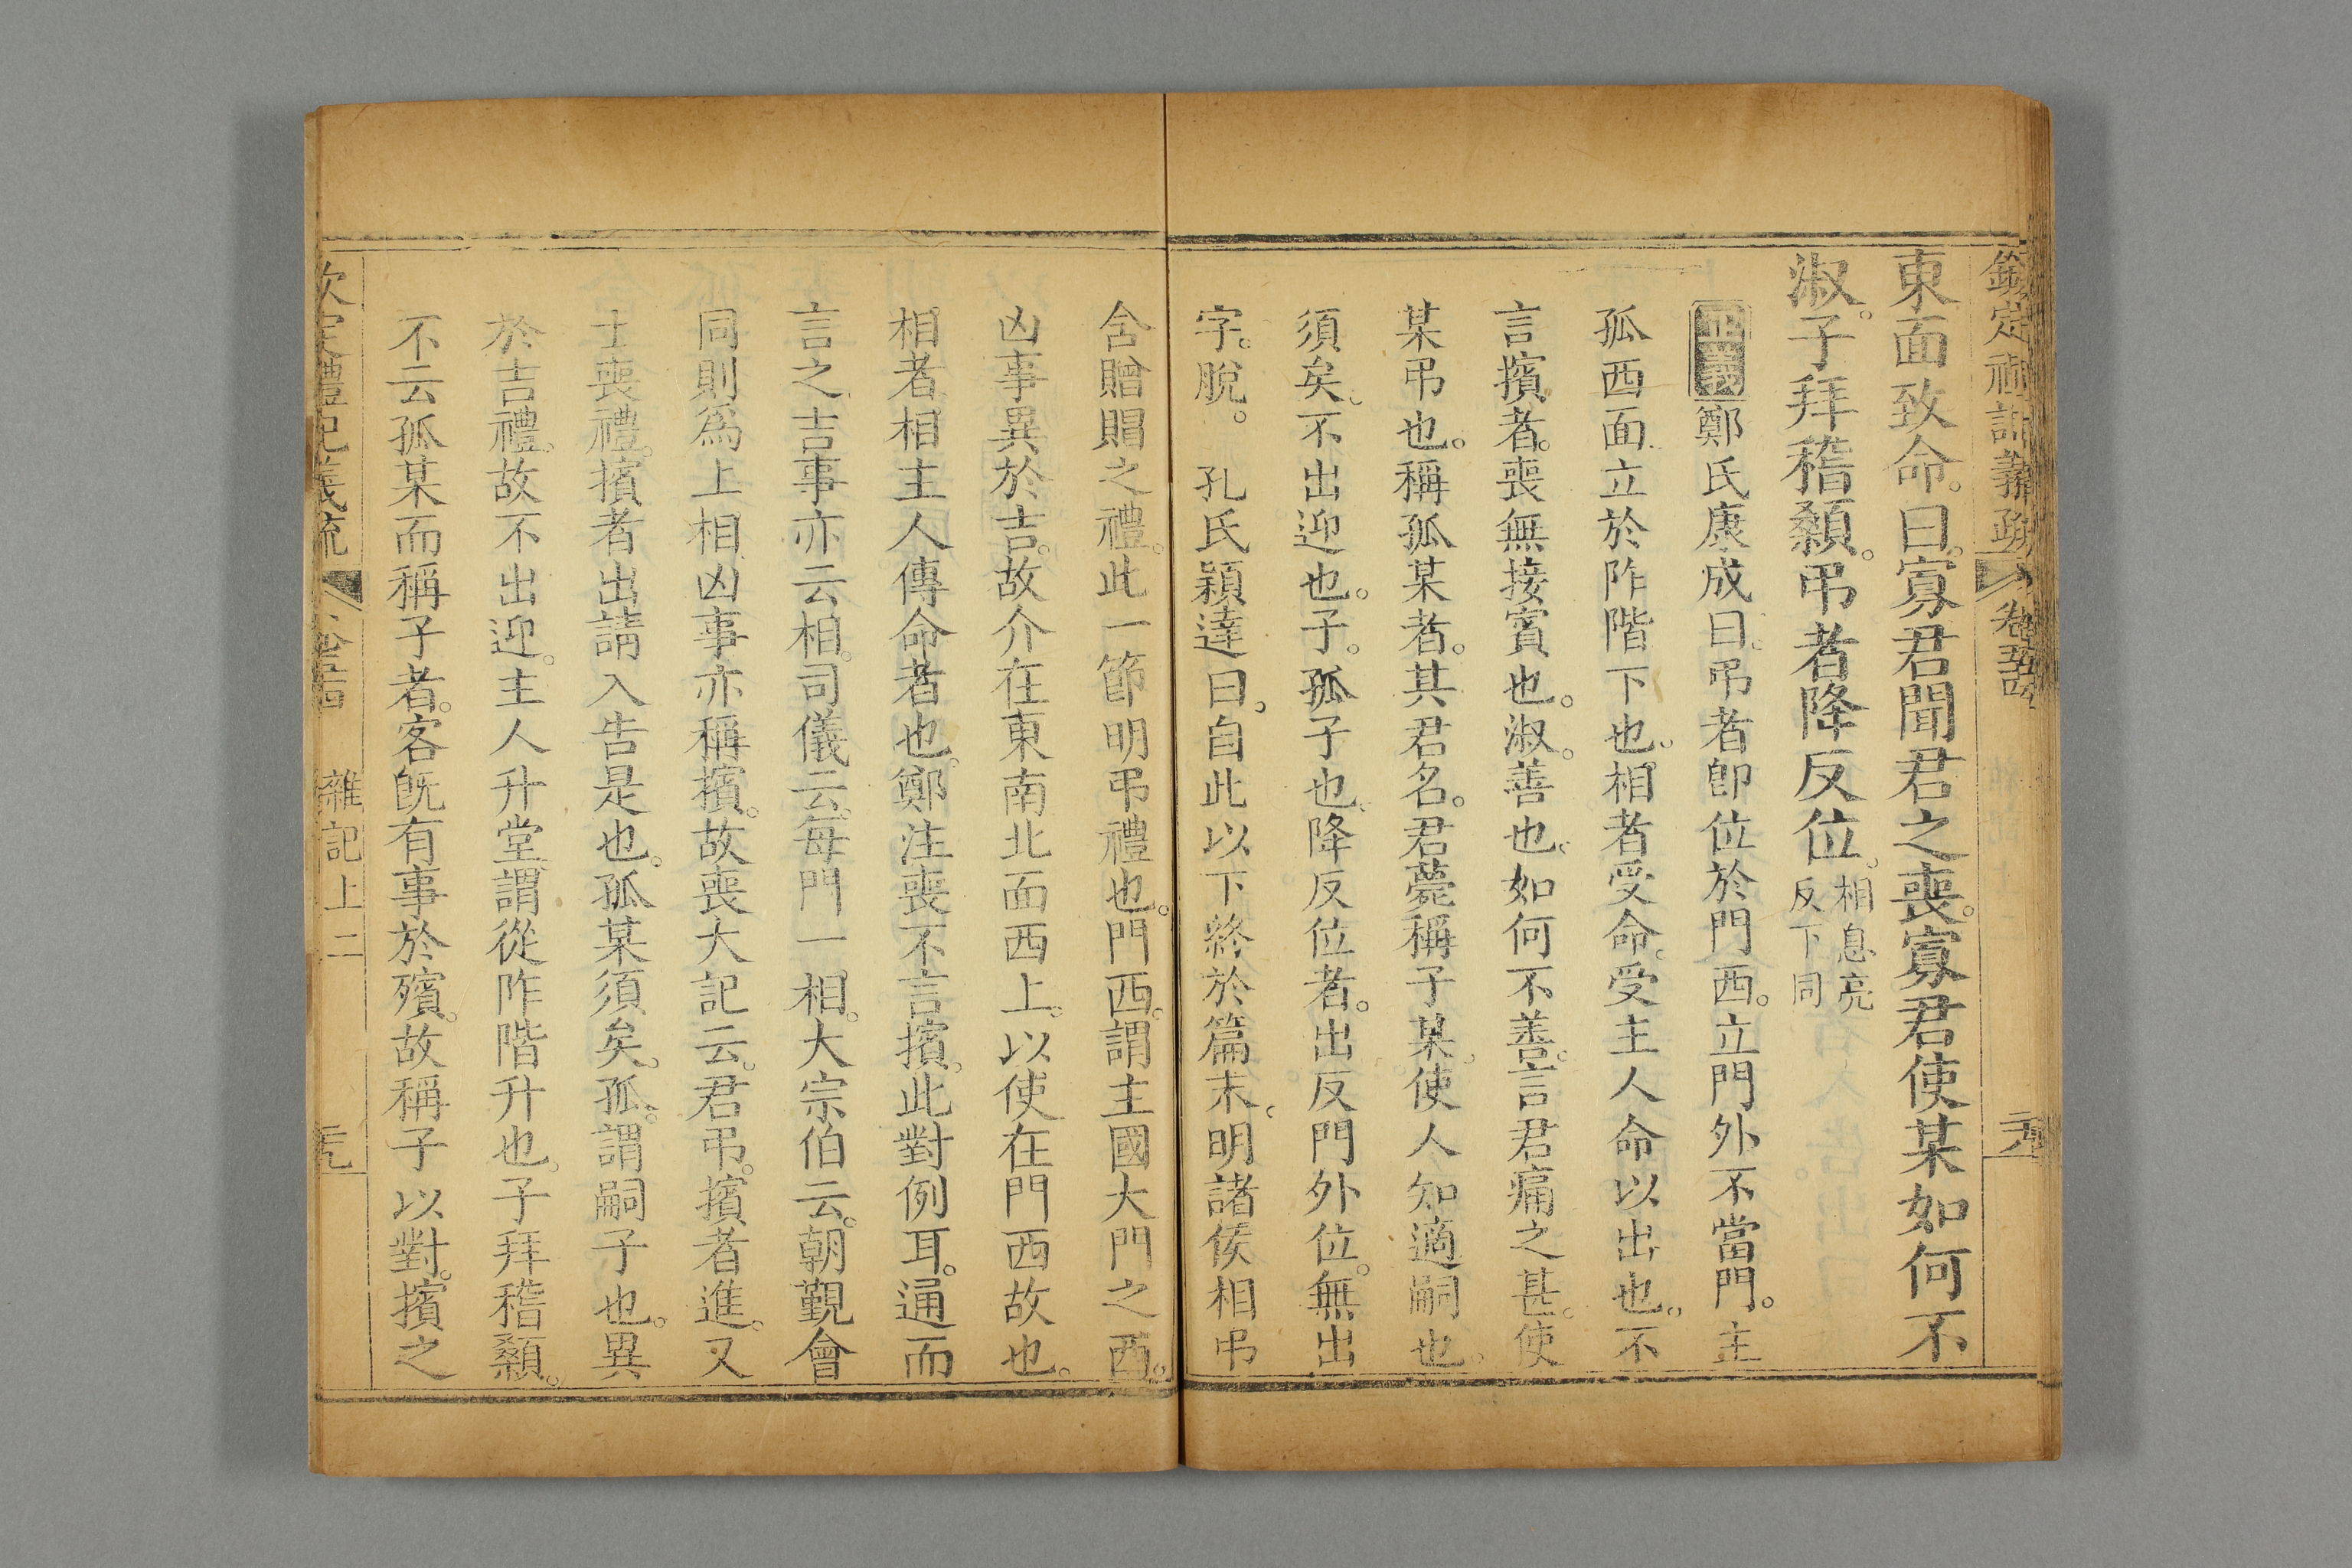 東面致命。曰。寡君聞君之喪。寡君使某如何不
淑。子拜稽顙。弔者降反位。相息亮反下同
正義鄭氏康成曰。弔者卽位於門西。立門外不當門。主
孤西面。立於阼階下也。相者受命。受主人命以出也。不
言擯者。喪無接賓也。淑。善也。如何不善。言君痛之甚。使
某弔也。稱孤某者。其君名。君薨稱子某。使人知適嗣也。
須矣。不出迎也。子。孤子也。降反位者。出反門外位。無出
字。脫。 孔氏穎達曰。自此以下終於篇末。明諸侯相弔
含贈賵之禮。此一節明弔禮也。門西。謂主國大門之西。
凶事異於吉。故介在東南北面西上。以使在門西故也。
相者相主人傳命者也。鄭注喪不言擯。此對例耳。通而
言之。吉事亦云相。司儀云。每門一相。大宗伯云。朝覲會
同則爲上相。凶事亦稱擯。故喪大記云。君弔。擯者進。又
士喪禮。擯者出請入告是也。孤某須矣。孤。謂嗣子也。異
於吉禮。故不出迎。主人升堂。謂從阼階升也。子拜稽顙。
不云孤某而稱子者。客旣有事於殯。故稱子以對。擯之
雜記上二